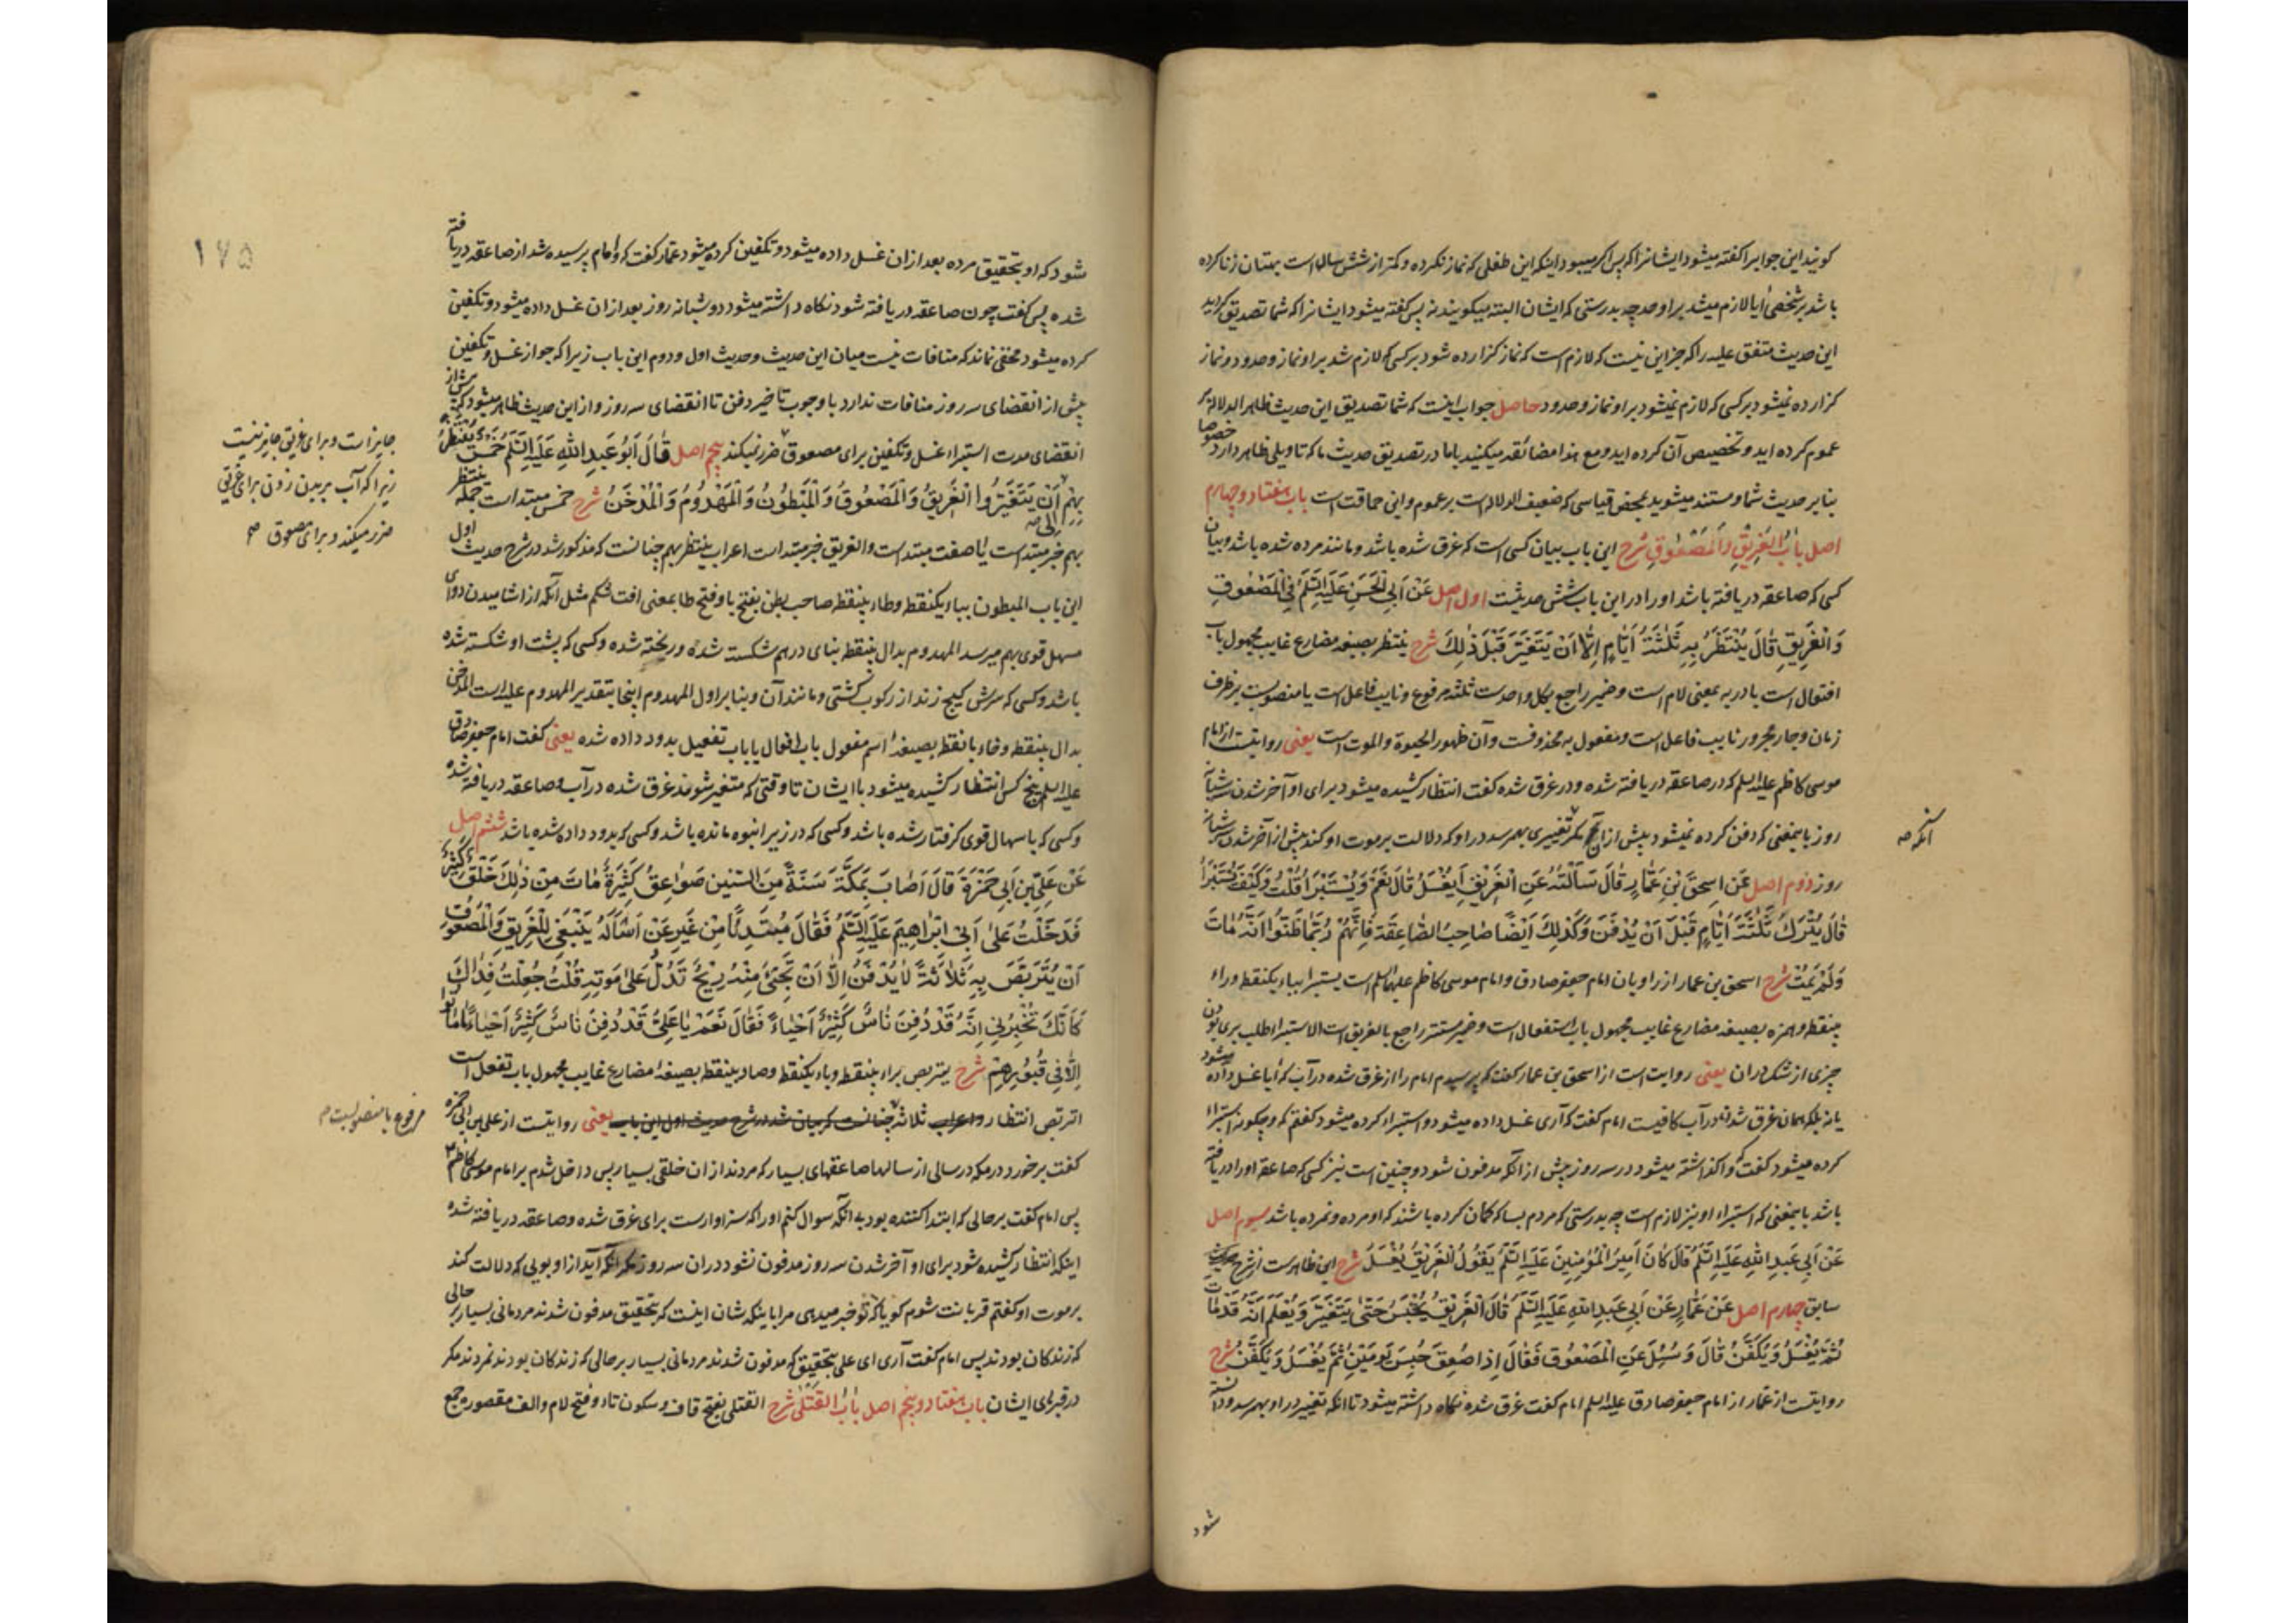 کویند این جوابرا کفته میشود ایشانرا که پس اکر میبود اینکه این طفلی که نماز نکرده و کمتر از شش سالها است بهمتان زنا کرده
باشد بر شخصی آیا لازم میشد بر او حد چه بدرستی که ایشان البته میکویند نه پس کفته میشود ایشانرا که شما تصدیق کردید
این حدیث متفق علیه را که جز این نیست که لازم است که نماز کزارده شود بر کسی که لازم شد بر او نماز و حدود و نماز
کزارده نمیشود بر کسی که لازم نمیشود بر او نماز و حدود حاصل جواب اینست که شما تصدیق این حدیث ظاهر الدلالة بر
عموم کرده اید و تخصیص آن کرده اید و مع هذا مضائقه میکنید باما در تصدیق حدیث ما که تاویلی ظاهر دارد خصوصا
بنابر حدیث شما و مستند میشوید بمحض قیاسی که ضعیف الدلاله است بر عموم و این حماقت است باب هفتاد و چهارم
اصل بَابُ الْغَرِيقِ وَالْمَصْعُوقِ شرح این باب بیان کسی است که غرق شده باشد و مانند مرده شده باشد و بیان
کسی که صاعقه دریافته باشد او را در این باب شش حدیثست اول اصل عَنْ اَبِى الْحَسَنِ عَلَيْهِ السَّلَمُ فِى الْمَصْعُوقِ
وَالْغَرِيقِ قَالَ يُنْتَظَرُ بِهِ ثَلٰثَةَ اَيَّامٍ اِلَّا اَنْ يَتَغَيَّرَ قَبْلَ ذٰلِكَ شرح ینتظر بصیغه مضارع غایب مجهول باب
افتعال است با در به بمعنی لام است و ضمیر راجع بکل واحدست ثلثه مرفوع و نایب فاعل است یا منصوبست بر ظرف
زمان و جار مجرور نایب فاعل است و مفعول به محذوفست و آن ظهور الحیوة والموت است یعنی روایتست از امام
موسی کاظم علیه السلم که در صاعقه دریافته شده و در غرق شده کفت انتظار کشیده میشود برای او آخر شدن سه شبانه
روز بایمعنی که دفن کرده نمیشود پیش از آن مکر تغییری بهمرسد در او که دلالت بر موت او کند پیش از آخر شدن سه شبانه
آنکه صه
روز دوم اصل عَنْ اِسْحٰقَ بْنِ عَمَّارٍ قَالَ سَاَلْتُهُ عَنِ الْغَرِيقِ اَيُغْسَلُ قَالَ نَعَمْ وَيُسْتَبْرَاُ قُلْتُ وَكَيْفَ يُسْتَبْرَاُ
قَالَ يُتْرَكُ ثَلٰثَةَ اَيَّامٍ قَبْلَ اَنْ يُدْفَنَ وَكَذٰلِكَ اَيْضًا صَاحِبُ الصَّاعِقَةِ فَاِنَّهُمْ رُبَّمَا ظَنُّوا اَنَّهُ مَاتَ
وَلَمْ يَمُتْ شرح اسحق بن عمار از راویان امام جعفر صادق و امام موسی کاظم علیهما السلم است یستبرا بباء یکنقطه و راء
بینقطه و همزه بصیغه مضارع غایب مجهول باب استفعال است و ضمیر مستتر راجع بالغریق است الاستبراء طلب بری بودن
چیزی از شک در آن یعنی روایت است از اسحق بن عمار کفت که پرسیدم امام را از غرق شده در آب که آیا غسل داده میشود
یا نه بلکه همان غرق شدن در آب کافیست امام کفت که آری غسل داده میشود و استبراء کرده میشود کفتم که و چکونه استبراء
کرده میشود کفت که واکذاشته میشود در سه روز پیش از آنکه مدفون شود و چنین است نیز کسی که صاعقه او را دریافته
باشد بایمعنی که استبراء او نیز لازم است چه بدرستی که مردم بسا که کمان کرده باشند که او مرده و نمرده باشد سیوم اصل
عَنْ اَبِى عَبْدِ اللّٰهِ عَلَيْهِ السَّلَمُ قَالَ كَانَ اَمِيرُ الْمُؤْمِنِينَ عَلَيْهِ السَّلَمُ يَقُولُ الْغَرِيقُ يُغْسَلُ شرح این ظاهرست از شرح حدیث
سابق چهارم اصل عَنْ عَمَّارٍ عَنْ اَبِى عَبْدِ اللّٰهِ عَلَيْهِ السَّلَمُ قَالَ الْغَرِيقُ يُحْبَسُ حَتّٰى يَتَغَيَّرَ وَيُعْلَمَ اَنَّهُ قَدْ مَاتَ
ثُمَّ يُغْسَلُ وَيُكَفَّنُ قَالَ وَسُئِلَ عَنِ الْمَصْعُوقِ فَقَالَ اِذَا صُعِقَ حُبِسَ يَوْمَيْنِ ثُمَّ يُغْسَلُ وَيُكَفَّنُ شرح
روایتست از عمار از امام جعفر صادق علیه السلم امام کفت غرق شده نکاه داشته میشود تا آنکه تغییر در او بهمرسد و دانسته
شود
۱۷۵
شود که او بتحقیق مرده بعد از ان غسل داده میشود و تکفین کرده میشود عمار کفت که و امام پرسیده شد از صاعقه دریافته
شده پس کفت چون صاعقه دریافته شود نکاه داشته میشود دو شبانه روز بعد از ان غسل داده میشود و تکفین
کرده میشود مخفی نماند که منافات نیست میان این حدیث و حدیث اول و دوم این باب زیرا که جواز غسل و تکفین
پیش از انقضای سه روز منافات ندارد با وجوب تاخیر دفن تا انقضای سه روز و از این حدیث ظاهر میشود که پیش از
انقضای مدت استبراء غسل و تکفین برای مصعوق ضرر نمیکند پنجم اصل قَالَ اَبُو عَبْدِ اللّٰهِ عَلَيْهِ السَّلَمُ خَمْسٌ يُنْتَظَرُ
جایز است و برای غریق جایز نیست
زیرا که آب بر بدن زدن برای غریق
ضرر میکند و برای مصعوق صه
بِهِمْ اَنْ يَتَغَيَّرُوا الْغَرِيقُ وَالْمَصْعُوقُ وَالْمَبْطُونُ وَالْمَهْدُومُ وَالْمُدَخَّنُ شرح خمس مبتداست جمله ینتظر
بهم خبر مبتداست یا صفت مبتداست و الغریق خبر مبتداست اعراب ینتظر بهم چنانست که مذکور شد در شرح حدیث اول
این باب المبطون بباء یکنقطه و طاء بینقطه صاحب بطن بفتح با و فتح طا بمعنی افت شکم مثل آنکه از اشامیدن دوای
مسهل قوی بهم میرسد المهدوم بدال بینقطه بنای درهم شکسته شده و ریخته شده و کسی که پشت او شکسته شده
باشد و کسی که سرش کیج زند از رکوب کشتی و مانند آن و بنابر اول المهدوم اینجا بتقدیر المهدوم علیه است المدخن
بدال بینقطه و خاء بانقطه بصیغه اسم مفعول باب افعال یا باب تفعیل بدود داده شده یعنی کفت امام جعفر صادق
علیه السلم پنج کس انتظار کشیده میشود با ایشان تا وقتی که متغیر شوند غرق شده در آب و صاعقه دریافته شده
و کسی که باسهال قوی کرفتار شده باشد و کسی که در زیر انبوه مانده باشد و کسی که بدود داده شده باشد ششم اصل
عَنْ عَلِىِّ بْنِ اَبِى حَمْزَةَ قَالَ اَصَابَ بِمَكَّةَ سَنَةً مِنَ السِّنِينَ صَوَاعِقُ كَثِيرَةٌ مَاتَ مِنْ ذٰلِكَ خَلْقٌ كَثِيرٌ
فَدَخَلْتُ عَلٰى اَبِى اِبْرَاهِيمَ عَلَيْهِ السَّلَمُ فَقَالَ مُبْتَدِئًا مِنْ غَيْرِ عَنْ اَسْاَلَهُ يَنْبَغِى لِلْغَرِيقِ وَالْمَصْعُوقِ
اَنْ يُتَرَبَّصَ بِهِ ثَلَاثَةً لَا يُدْفَنُ اِلَّا اَنْ تَجِئَ مِنْهُ رِيحٌ تَدُلُّ عَلٰى مَوْتِهِ قُلْتُ جُعِلْتُ فِدَاكَ
كَاَنَّكَ تُخْبِرُنِى اِنَّهُ قَدْ دُفِنَ نَاسٌ كَثِيْرٌ اَحْيَاءً فَقَالَ نَعَمْ يَا عَلِىُّ قَدْ دُفِنَ نَاسٌ كَثِيرٌ اَحْيَاءً مَا مَاتُوا
اِلَّا فِى قُبُورِهِمْ شرح یتربص براء بینقطه و باء یکنقطه و صاد بینقطه بصیغه مضارع غایب مجهول باب تفعل است
التربص انتظار و اعراب ثلاثه چنانست که بیان شد در شرح حدیث اول این باب یعنی روایتست از علی بن ابی حمزه
مرفوع یا منصوبست صه
کفت برخورد در مکه در سالی از سالها صاعقهای بسیار که مردند از ان خلقی بسیار پس داخل شدم بر امام موسی کاظم ع
پس امام کفت بر حالی که ابتدا کننده بود بی آنکه سوال کنم او را که سزاوارست برای غرق شده و صاعقه دریافته شده
اینکه انتظار کشیده شود برای او آخر شدن سه روز مدفون نشود در ان سه روز مکر آنکه آید از او بویی که دلالت کند
بر موت او کفتم قربانت شوم کویا که تو خبر میدهی مرا باینکه شان اینست که بتحقیق مدفون شدند مردمانی بسیار بر حالی
که زندکان بودند پس امام کفت آری ای علی بتحقیق که مدفون شدند مردمانی بسیار بر حالی که زندکان بودند نمردند مکر
در قبرهای ایشان باب هفتاد و پنجم اصل بَابُ الْقَتْلٰى شرح القتلی بفتح قاف و سکون تاء و فتح لام و الف مقصوره جمع